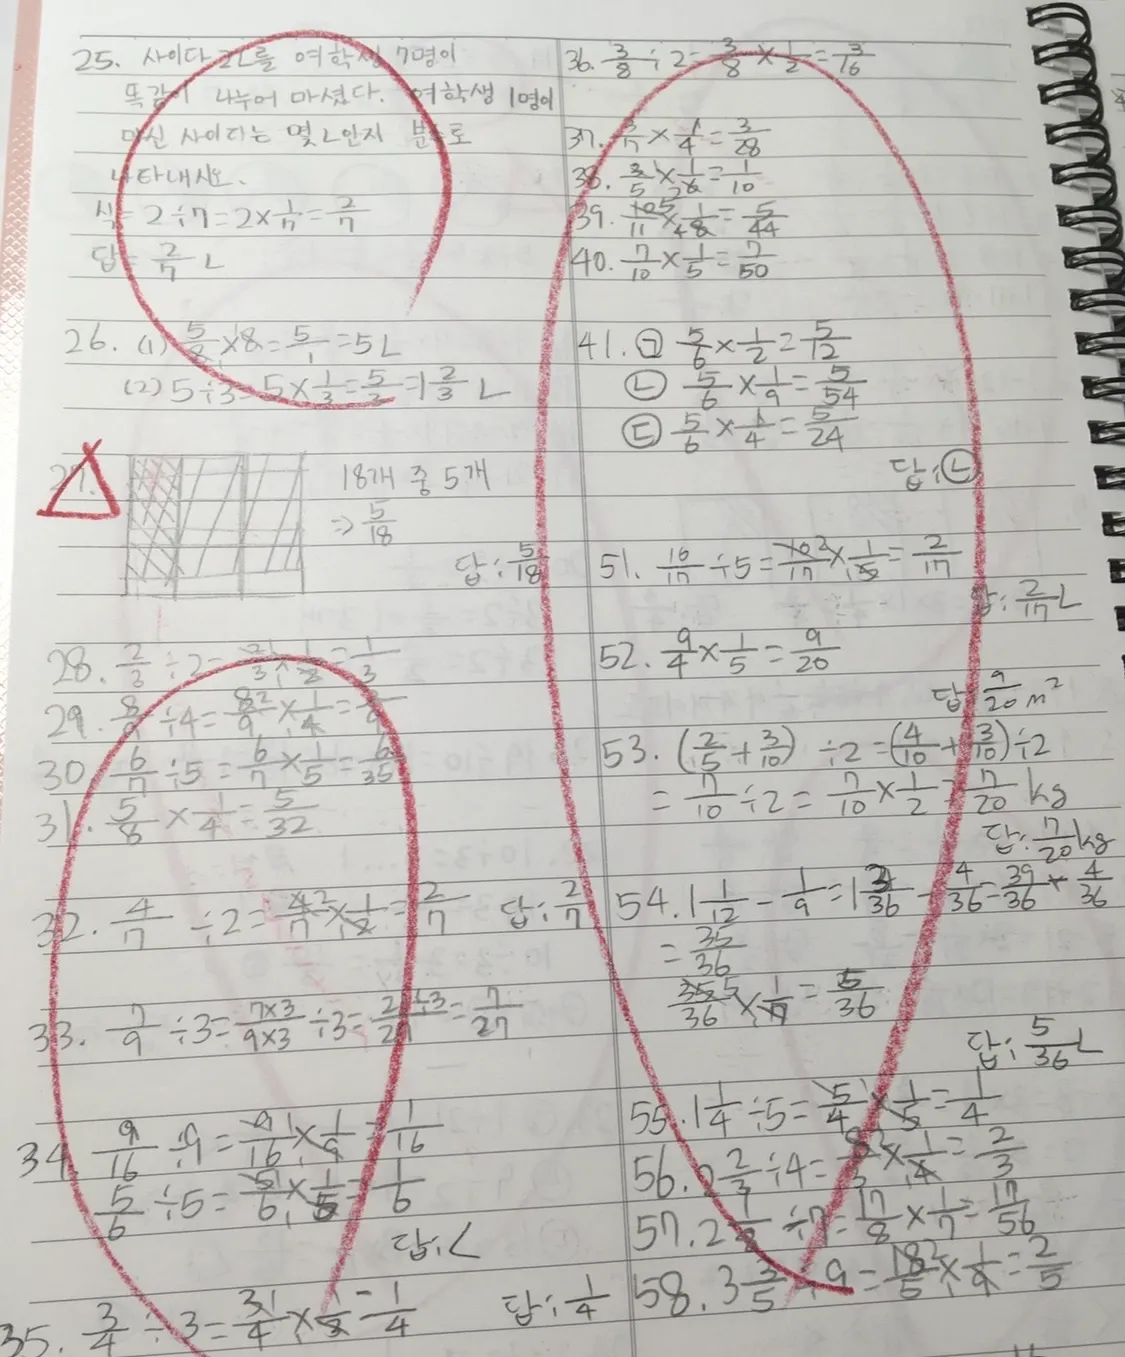 25. 사이다 2L를 여학생 7명이
똑같이 나누어 마셨다. 여학생 1명이
마신 사이다는 몇 L인지 분수로
나타내시오.
식= 2÷7=2×1/7=2/7
답= 2/7 L
26. (1) 5/8×8=5/1=5L
(2) 5÷3=5×1/3=5/3=1 2/3 L
27.
18개 중 5개
⇒ 5/18
답: 5/18
28. 2/3÷2=2/3×1/2=1/3
29. 8/9÷4=8/9×1/4=2/9
30 6/7÷5=6/7×1/5=6/35
31. 5/8×1/4=5/32
32. 4/7÷2=4/7×1/2=2/7 답: 2/7
33. 7/9÷3=7×3/9×3÷3=21÷3/27=7/27
34. 9/16÷9=9/16×1/9=1/16
5/6÷5=5/6×1/5=1/6
답: <
35. 3/4÷3=3/4×1/3=1/4 답: 1/4
36. 3/8÷2=3/8×1/2=3/16
37. 3/7×1/4=3/28
38. 3/5×1/6=1/10
39. 10/11×1/8=5/44
40. 7/10×1/5=7/50
41. ㉠ 5/6×1/2=5/12
㉡ 5/6×1/9=5/54
㉢ 5/6×1/4=5/24
답: ㉡
51. 10/17÷5=10/17×1/5=2/17
답: 2/17 L
52. 9/4×1/5=9/20
답: 9/20 m²
53. (2/5+3/10)÷2=(4/10+3/10)÷2
=7/10÷2=7/10×1/2=7/20 kg
답: 7/20 kg
54. 1 1/12-1/9=1 3/36-4/36=39/36-4/36
=35/36
35/36×1/7=5/36
답: 5/36 L
55. 1 1/4÷5=5/4×1/5=1/4
56. 2 2/3÷4=8/3×1/4=2/3
57. 2 1/8÷7=17/8×1/7=17/56
58. 3 3/5÷9=18/5×1/9=2/5